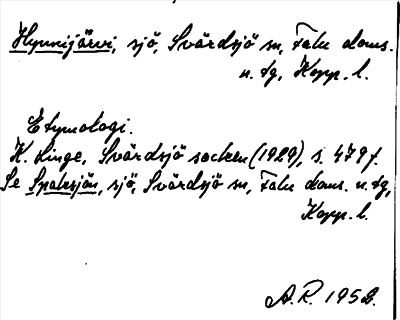 Hynnijärvi, sjö, Svärdsjö sn, Falu doms.
n. tg, Kopp. l.
Etymologi.
K. Linge, Svärdsjö socken (1929), s. 479 f.
Se Spaksjön, sjö, Svärdsjö sn, Falu doms. n. tg,
Kopp. l.
A.R. 1952.